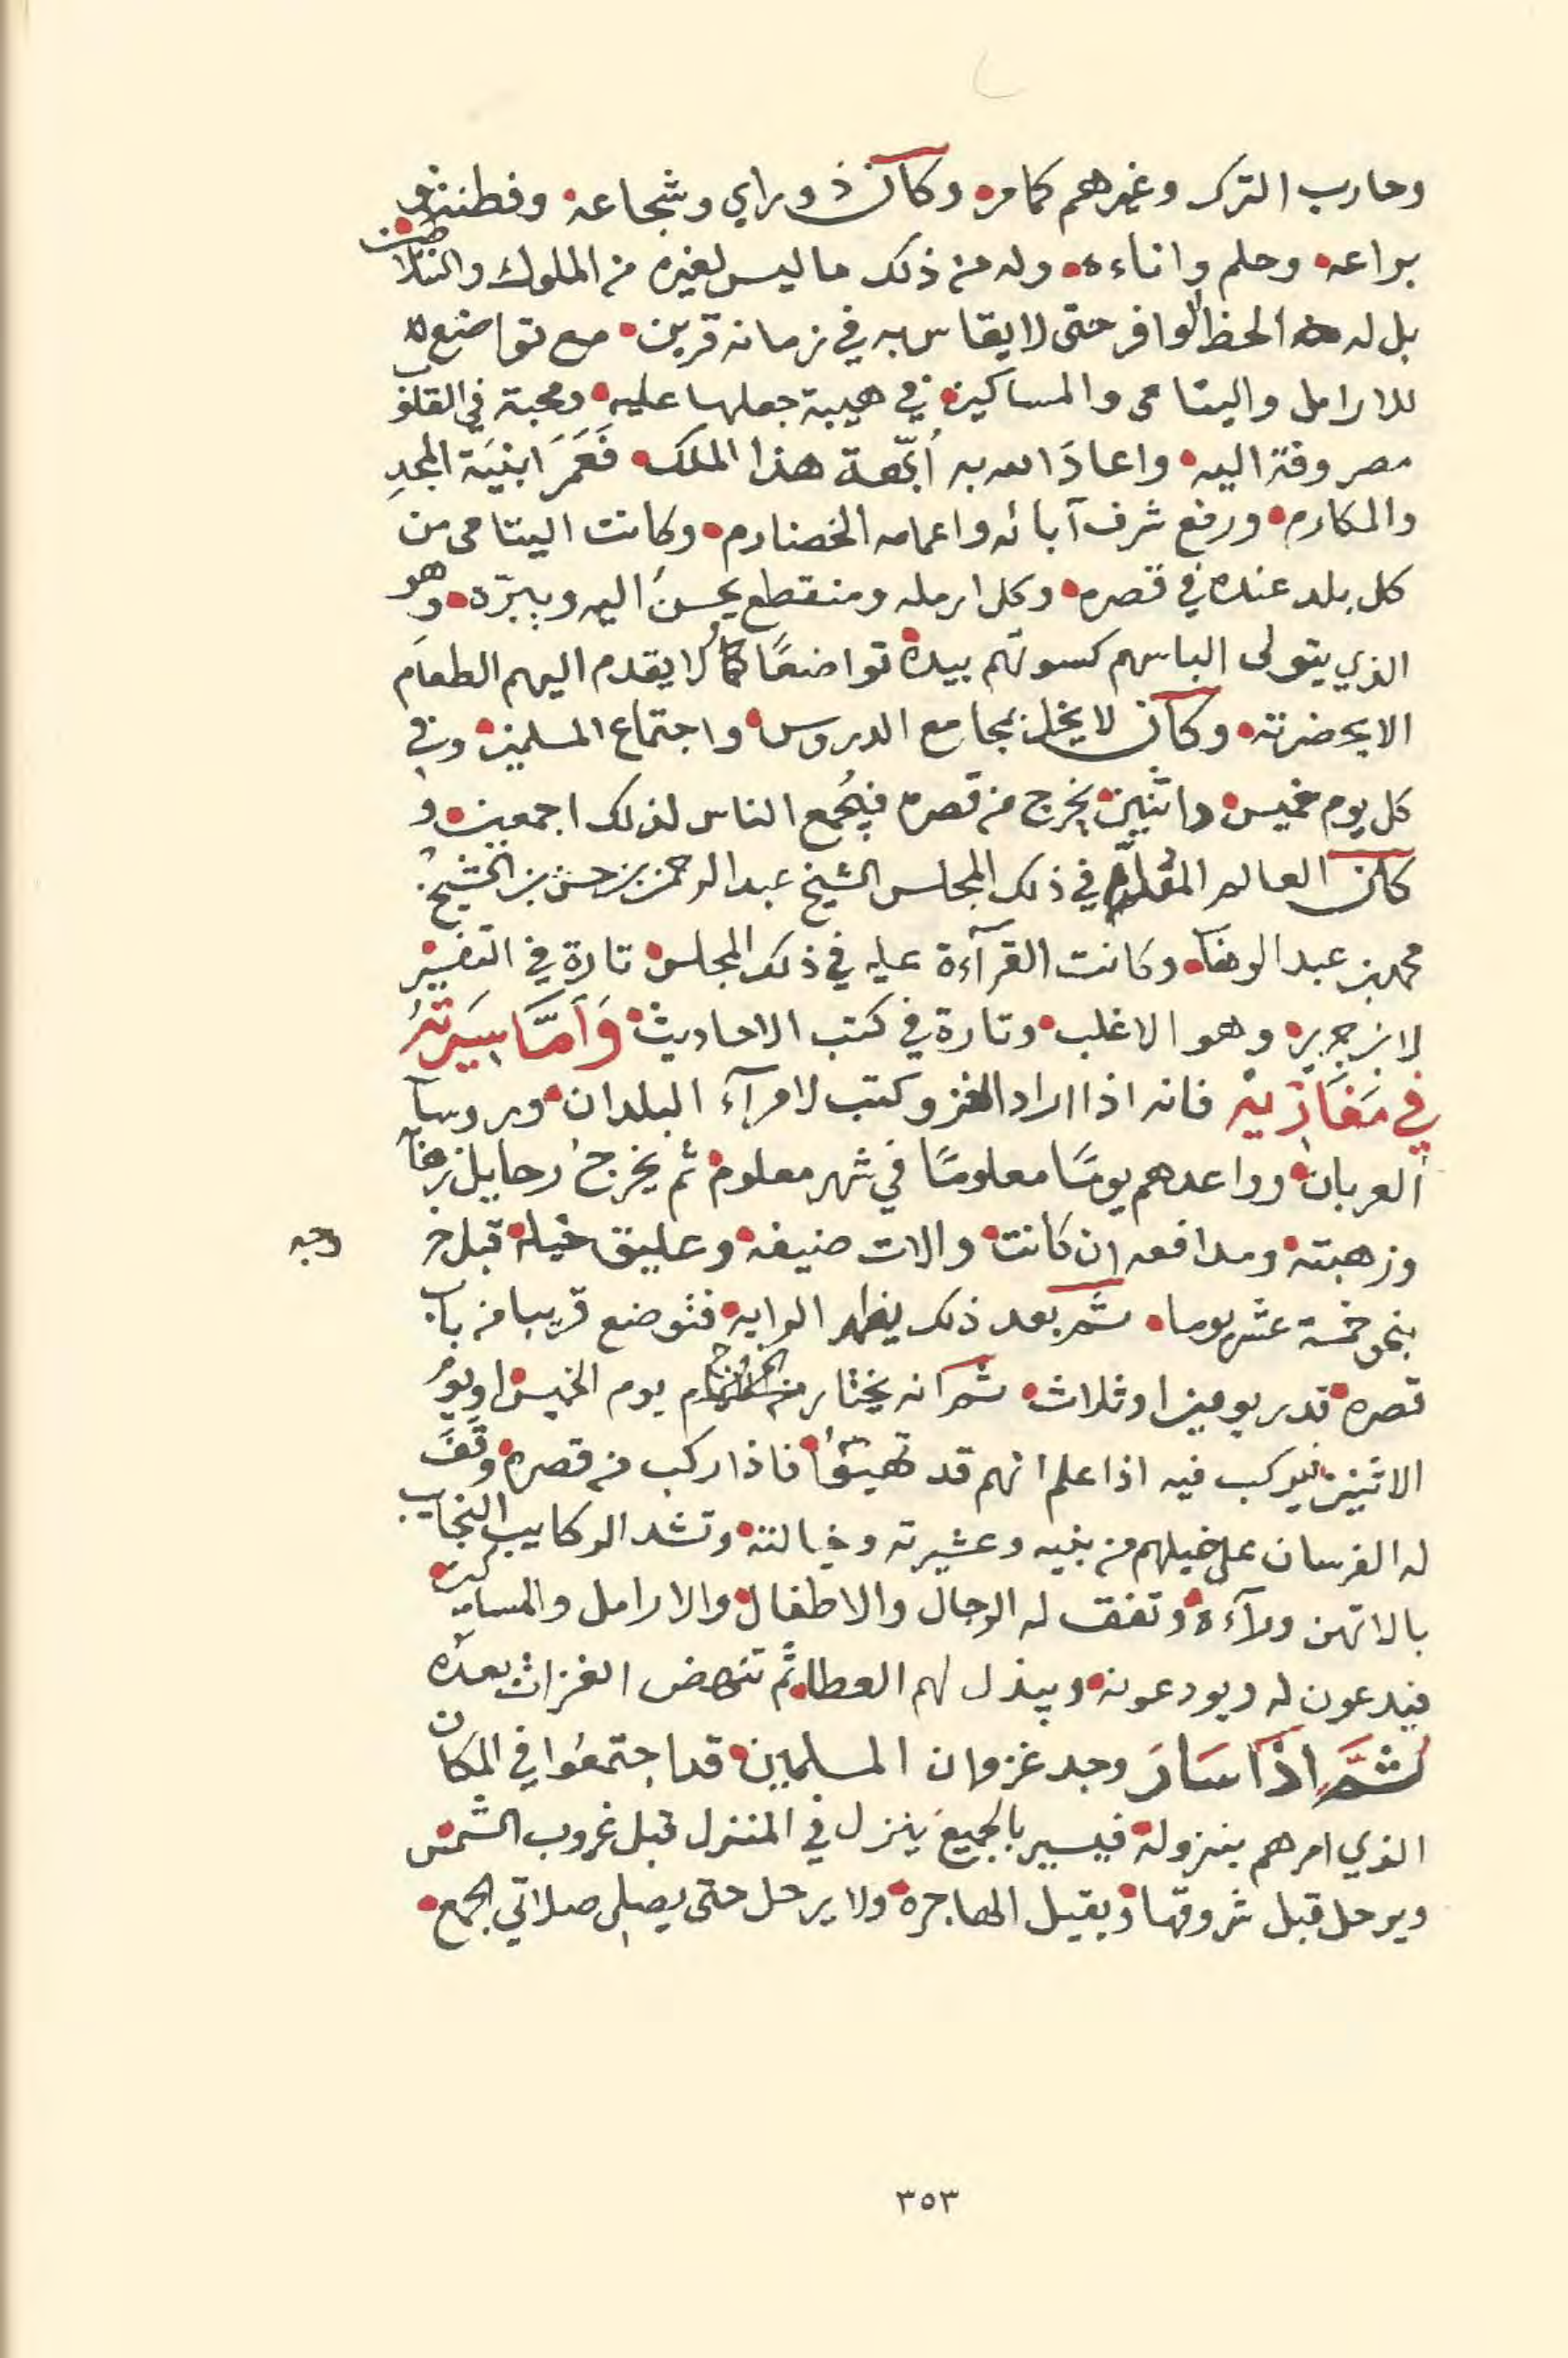 وحارب الترك وغيرهم كما مر وكان ذو راي وشجاعه وفطنة و
براعه وحلم واناءه وله من ذلك ما ليس لغيره من الملوك والسلاطين
بل له الحظ الوافر حتى لا يقاس به في زمانه قرين مع تواضع
للارامل واليتامى والمساكين في هيبة جعلها عليه ومحبة في القلوب
مصروفة اليه واعاد الله به أبّهة هذا الملك فَعَمَرَ ابنيَة المجدِ
والمكارم ورفع شرف آبائه واعمامه الخضارم وكانت اليتامى من
كل بلد عنده في قصره وكل ارمله ومنقطع يحسنُ اليه ويبرّه وهو
الذي يتولى الباسهم كسوتهم بيده تواضعًا كما لا يقدم اليهم الطعام
الا بحضرته وكان لا يخل بمجامع الدروس واجتماع المسلمين وفي
كل يوم خميس واثنين يخرج من قصره فيُجمع الناس لذلك اجمعين و
كان العالم المقدّم في ذلك المجلس الشيخ عبد الرحمن بن حسن بن الشيخ
محمد بن عبد الوهاب وكانت القرآءة عليه في ذلك المجلس تارة في التفسير
لابن جرير وهو الاغلب وتارة في كتب الاحاديث وَأمَّا سِيَرتهُ
في مَغَازيْه فانه اذا اراد الغزو كتب لامرآء البلدان وروسآ
العربان وواعدهم يومًا معلومًا في شهر معلوم ثم يخرج رحايل زهابه
وزهبته ومدافعه ان كانت والات ضيفه وعليق خيله قبل خروجه
بنحو خمسة عشر يوما ثم بعد ذلك يظهر الرايه فتوضع قريبا من باب
قصره قدر يومين او ثلاث ثم انه يختار للخروج يوم الخميس او يوم
الاثنين فيركب فيه اذا علم انهم قد تهيئوا فاذا ركب من قصره وقفَ
له الفرسان على خيلهم من بنيه وعشيرته وخيالته وتشد الركايب النجايب
بالاتهن ورآءه وتقف له الرجال والاطفال والارامل والمساكين
فيدعون له ويودعونه ويبذل لهم العطا ثم تنهض الغزات بعده
ثُمَّ اذَا سَارَ وجد غزوان المسلمين قد اجتمعوا في المكان
الذي امرهم بنزوله فيسير بالجميع ينزل في المنزل قبل غروب الشمس
ويرحل قبل شروقها ويقيل الهاجره ولا يرحل حتى يصلي صلاتي الجمع
٣٥٣